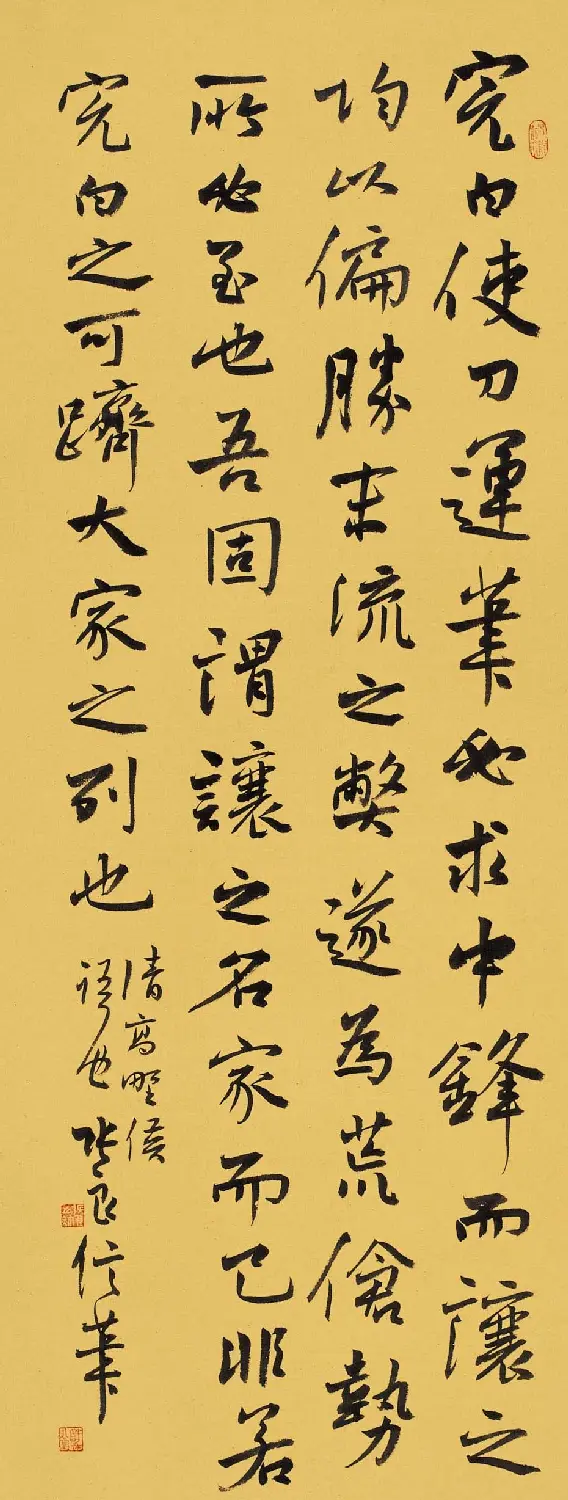 完白使刀運筆必求中鋒而讓之
均以偏勝末流之弊遂為荒傖勢
所必至也吾固謂讓之名家而已非若
完白之可躋大家之列也
清高野侯
語也 良信筆